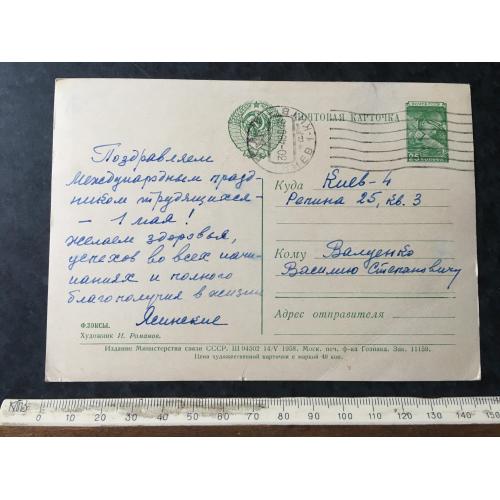 ПОЧТОВАЯ КАРТОЧКА
Поздравляем
международным празд-
ником трудящихся -
- 1 мая!
желаем здоровья,
успехов во всех начи-
наниях и полного
благополучия в жизни
Ясинские
Флоксы.
Художник И. Романов.
Куда Киев-4
Репина 25, кв. 3
Кому Валуенко
Василию Степановичу
Адрес отправителя
Издание Министерства связи СССР. Ш 04502 14/V 1958. Моск. печ. ф-ка Гознака. Зак. 11159.
Цена художественной карточки с маркой 40 коп.
0 10 20 30 40 50 60 70 80 90 100 110 120 130 140 150